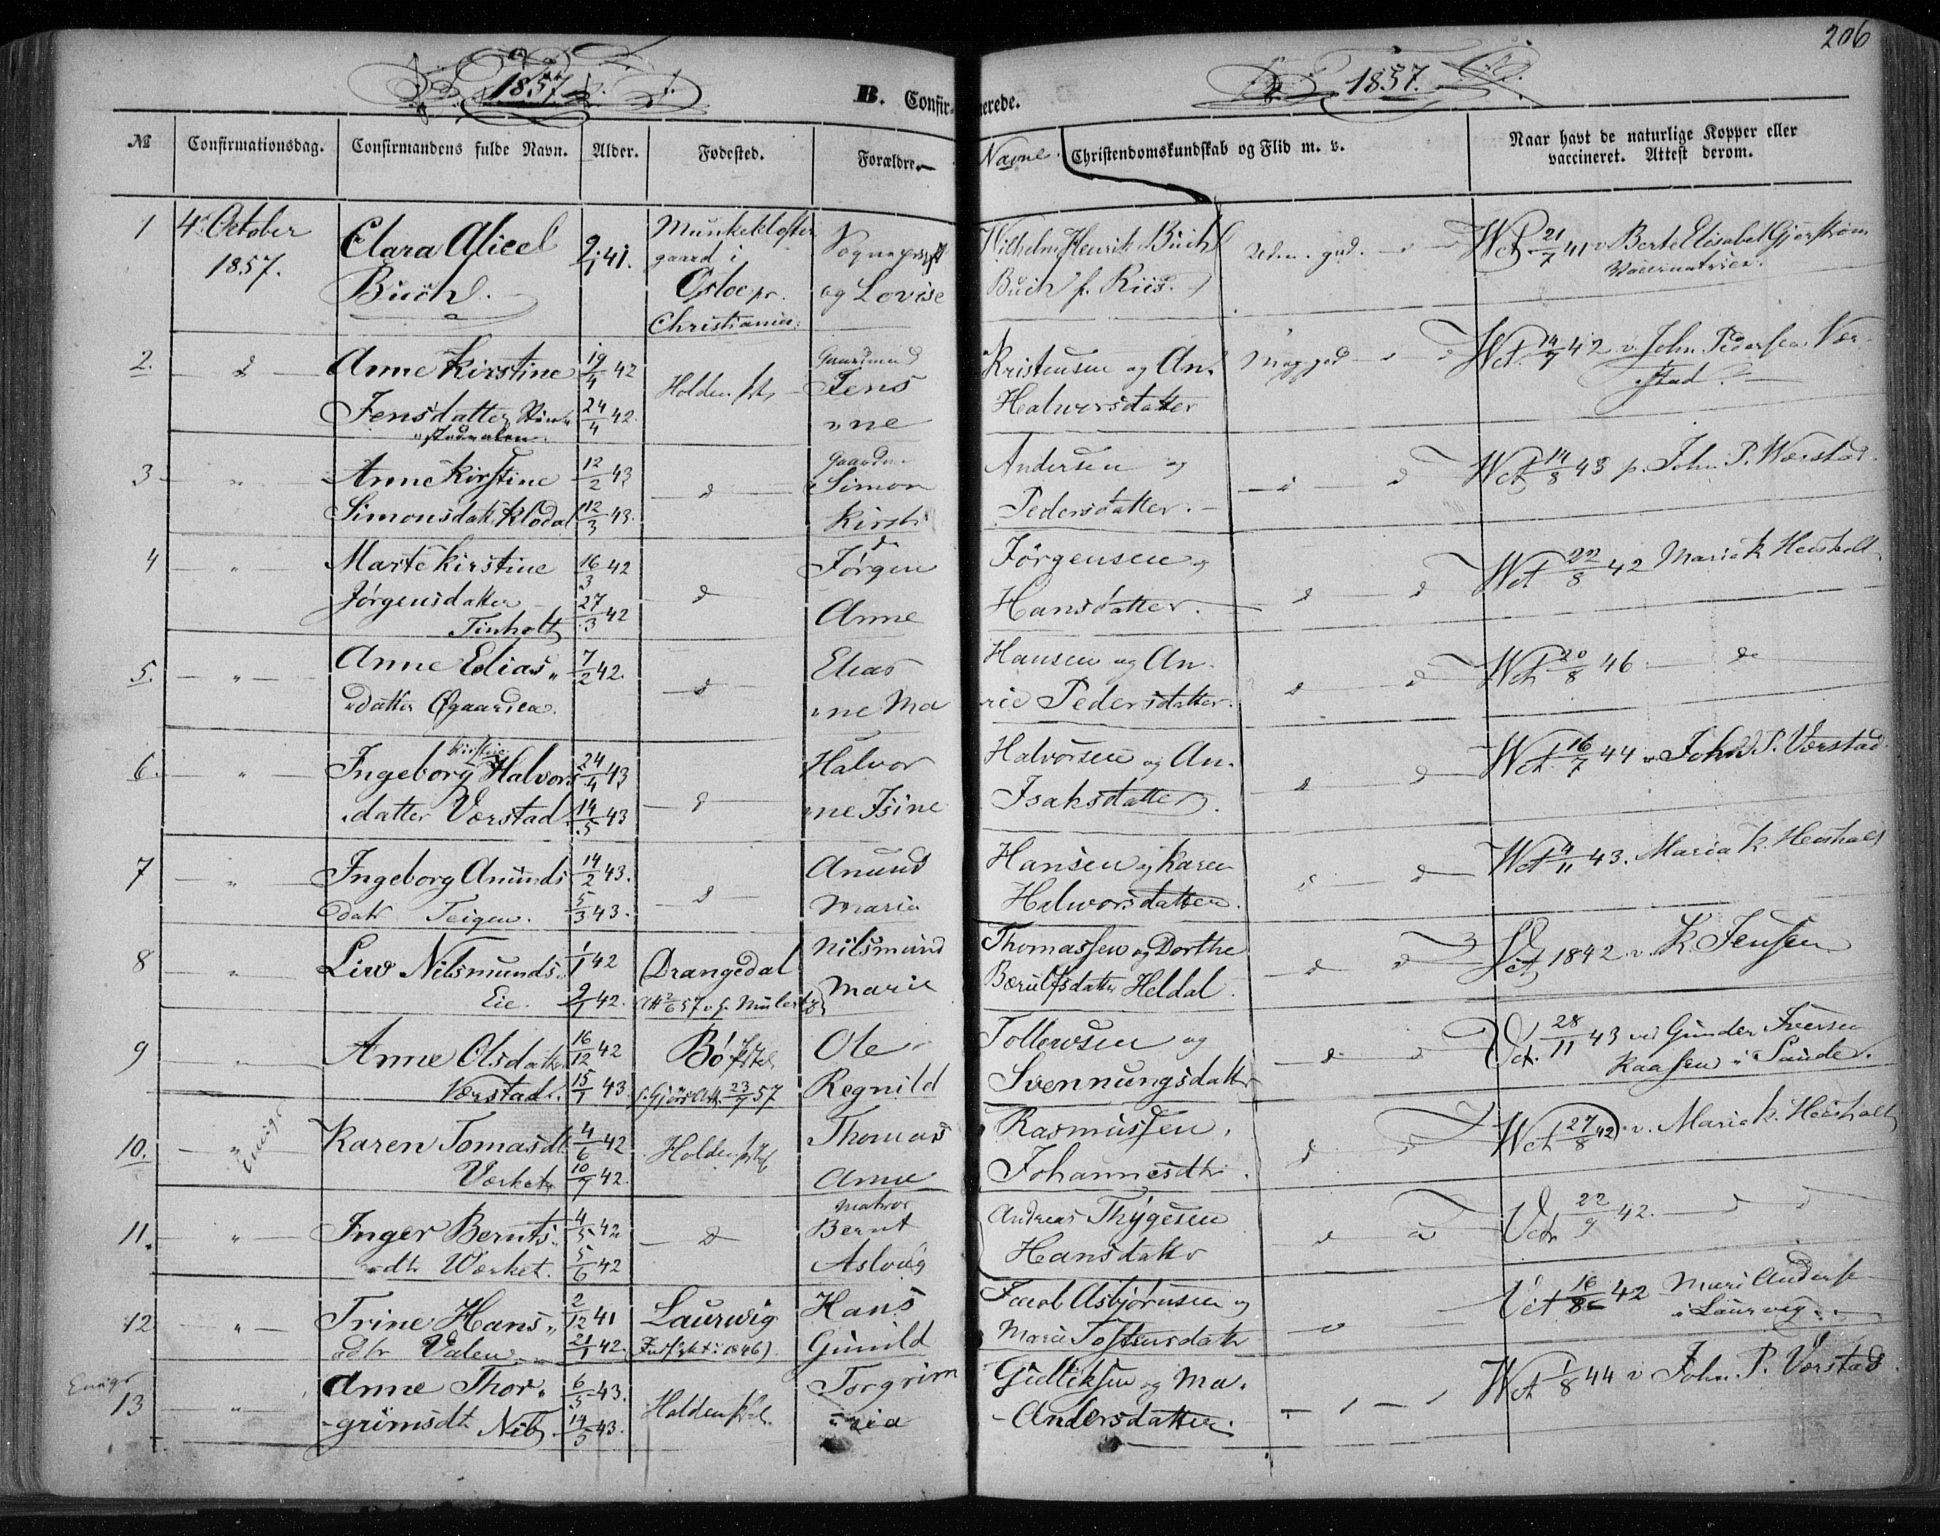 206
1857.
B. Confirmerede.
1857.
№ Confirmationsdag. Confirmandens fulde Navn. Alder. Fødested. Forældre Navne. Christendomskundskab og Flid m. v. Naar havt de naturlige Kopper eller vaccineret. Attest derom.
1 4. October Clara Alicel 2/1 41. Munkekloster Wilhelm Henrik Büchl Udm. gd. Vct 21/7 41 v Berte Elisabet
1857. Büchl. gaard i og Lovise Buch f. Riis.
Oslo pr.
Christiania
2. d Anne Kirstine 19/4 42 Holden Gaardmand Jens Kristensen og An- Meget god Vct. 14/7 42 v. John Pedersen Vær-
Jensdatter 24/4 42. ne Halvorsdatter stad.
3 " Anne Kirstine 12/2 43 d Gaardm. Simon Andersen og d d Vct 14/8 43 p. John P. Værstad.
Simonsdatt Klodal 12/3 43. Kirst Pedersdatter.
4 " Marte Kirstine 16/3 42 d d Jørgen Jørgensen og d d Vct 22/8 42 Maria K. Heisholt
Jørgensdatter 27/3 42 Anne Hansdatter.
Tinholt
5. " Anne Elias 7/2 42. d Elias Hansen og An- d d Vct 20/8 46 do
datter Øgaarden. ne Marie Pedersdatter.
6. " Ingeborg Kirstine Halvors 24/4 43 d Halvor Halvorsen og An- d d Vct. 16/7 44 v John P. Værstad
datter Værstad 14/5 43 ne Isine Isaksdatter.
7 " Ingeborg Anunds 14/2 43. d Anund Hansen og Karen d d Vct 4/11 43. Maria K. Heisholt
datr Teigen. 5/3 43. Maria Halvorsdatter.
8 " Liv Nilsmunds 1/1 42 Drangedal Nilsmund Thomassen og Dorthe d d Vct 1842 v. K. Jensen
Eie. 2/1 42. Att 2/6 57 v. Marie Bærulfsdatter Heldal.
9 " Anne Olsdatter 16/12 42 Bø Ole Tollevsen og d d Vct. 28/11 43 ved Gunder Iversen
Værstad. 15/1 43. Att. 23/9 57 Regnild Svennungsdatter Kaasen i Saude.
10. " Karen Tomasdt 4/6 42 Holden Thomas Rasmussen d d Vct 27/8 42 v. Maria K. Heisholt
Værket 10/7 42. Anne Johannesdtr.
11. " Inger Bernts 4/5 42 d Bernt Andreas Thygesen d d Vct 22/9 42. d d
dtr Wærket. 5/6 42 Asloug Hansdatter
12 " Trine Hans 2/12 41 Laurvig Hans Jacob Asbjørnsen og Vct 16/8 42 Mari Andersen
dtr Valen 21/1 42. Gunild Marie Tostensdatter i Laurvig.
13 " Anne Thor- 6/5 43. Holden Torgrim Gulliksen og Ma- Vct 1/8 44 v John P. Værstad.
grimsdt. 14/5 43. ria Andersdatter.